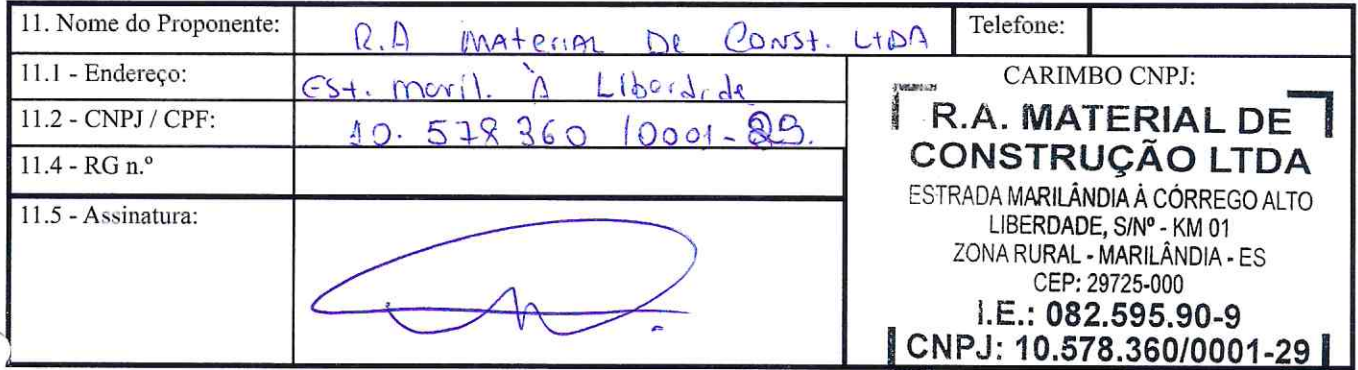 11. Nome do Proponente: R.A Material De Const. LtDA Telefone:
11.1 - Endereço: Est. Maril. À Liberdade
11.2 - CNPJ / CPF: 10. 578 360 /0001-29.
11.4 - RG n.º
11.5 - Assinatura:
CARIMBO CNPJ:
R.A. MATERIAL DE
CONSTRUÇÃO LTDA
ESTRADA MARILÂNDIA À CÓRREGO ALTO
LIBERDADE, S/Nº - KM 01
ZONA RURAL - MARILÂNDIA - ES
CEP: 29725-000
I.E.: 082.595.90-9
CNPJ: 10.578.360/0001-29